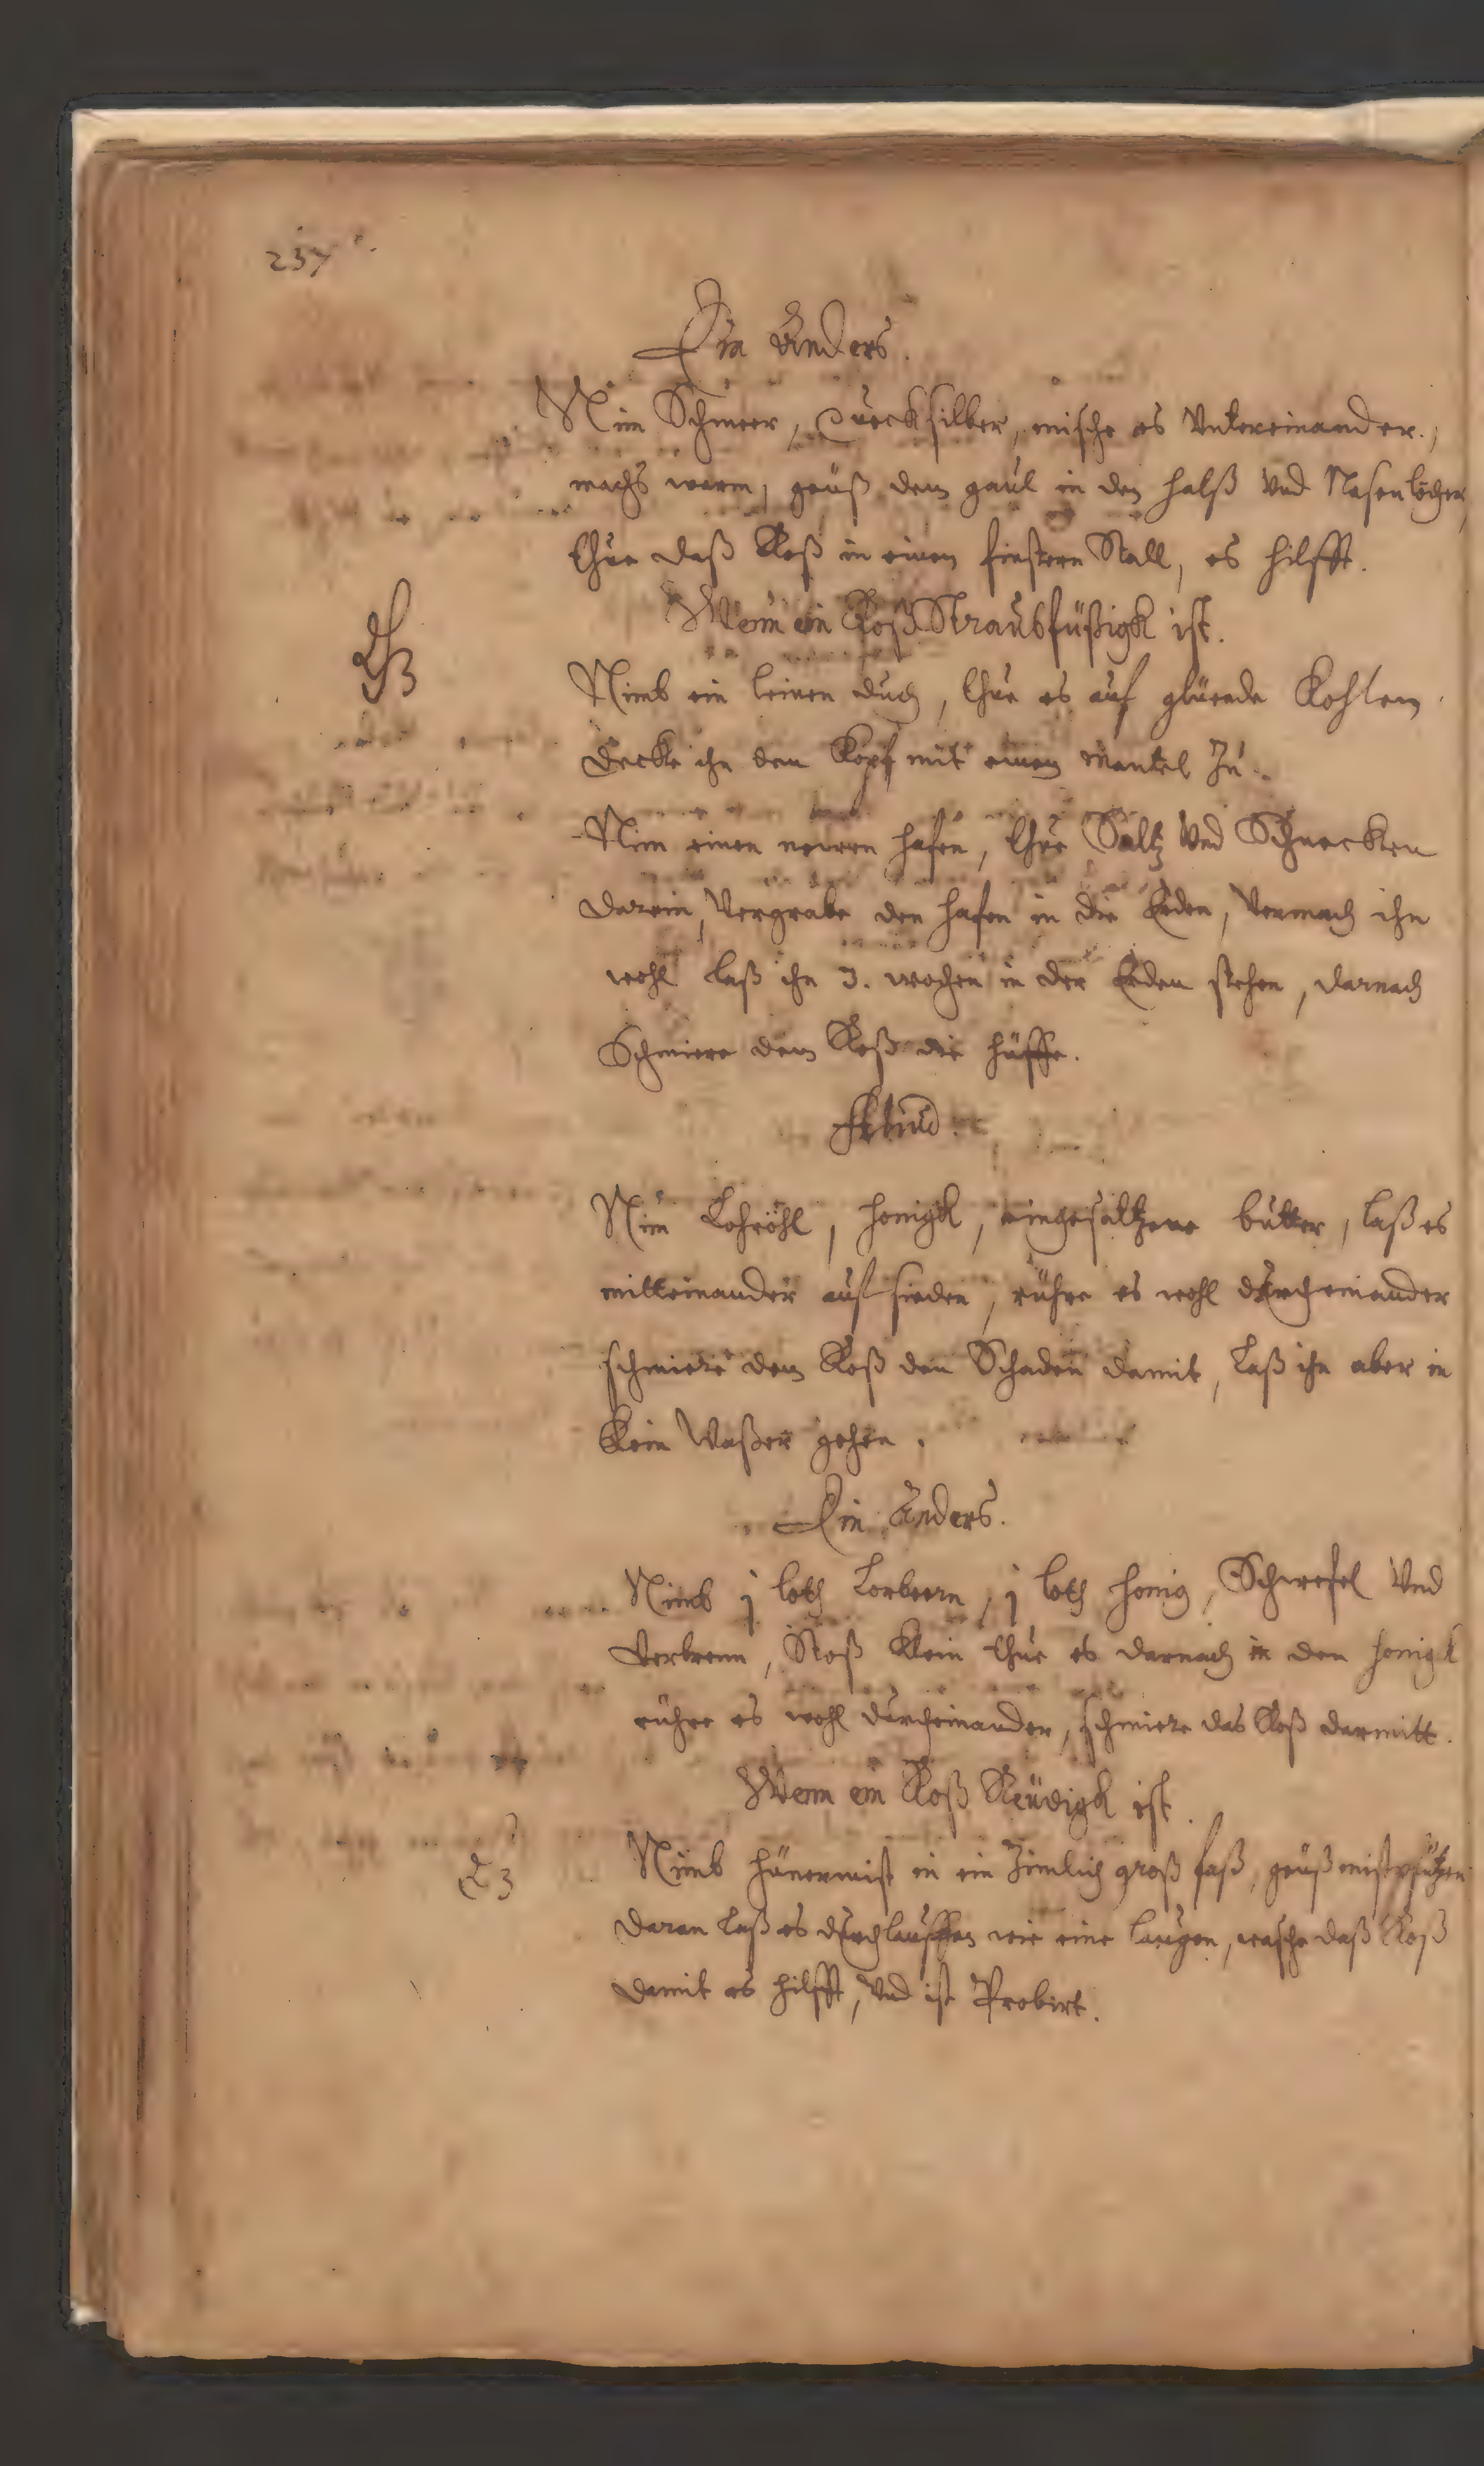 237
Ein Anders.
Nim Schmeer, Quecksilber, mische es Untereinander,
machs warm, geuß dem gaul in den halß Und Nasenlöcher,
thue daß Roß in einen finstern Stall, es hilfft.
Wenn ein Roß Straubfüßigk ist.
Nimb ein leinen duch, thue es auf glüende Kohlen
decke ihn den Kopf mit einen Mantel Zu.
Nim einen neuen hafen, thue Saltz Und Schnecken
darein, Vergrabe den hafen in die Erden, Vermach ihn
wohl laß ihn 3. wochen in der Erden stehen, darnach
Schmiere dem Roß die hüffe.
Nim Lohröhl, honigk, eingesaltzene butter, laß es
mitteinander auf sieden, rühre es wohl durcheinander
schmiere dem Roß den Schaden damit, Laß ihn aber in
Kein Waßer gehen.
Ein Anders.
Nimb j loth Lorbeern, j loth honig, Schwefel Und
Verbrenn, Stoß klein thue es darnach in den honigk
rühre es wohl durcheinander, schmiere das Roß darmitt.
Wenn ein Roß Reüdigk ist.
Nimb hünermist in ein Zimlich groß faß, geuß mistpfützen
daran laß es durchlauffen wie eine laugen, wasche daß Roß
damit es hilfft, Und ist Probirt.